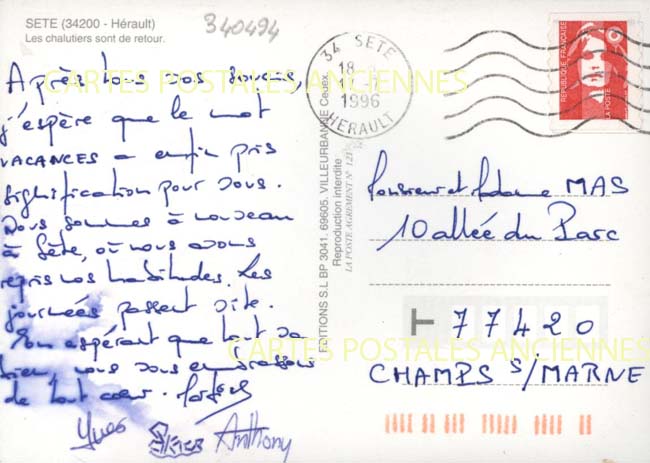 SETE (34200 - Hérault)
Les chalutiers sont de retour.
340494
Après tous vos soucis,
j'espère que le mot
VACANCES a enfin pris
signification pour vous.
Nous sommes à nouveau
à Sète, où nous avons
repris nos habitudes. Les
journées passent vite.
En espérant que tout va
bien, nous vous embrassons
de tout cœur.
Yves
Anthony
EDITIONS S.L BP 3041. 69605. VILLEURBANNE Cedex.
Reproduction interdite
LA POSTE AGREMENT N° 121
34 SETE
18
1996
HERAULT
REPUBLIQUE FRANÇAISE
LA POSTE
Monsieur et Madame MAS
10 allée du Parc
77420
CHAMPS S/MARNE
CARTES POSTALES ANCIENNES
CARTES POSTALES ANCIENNES